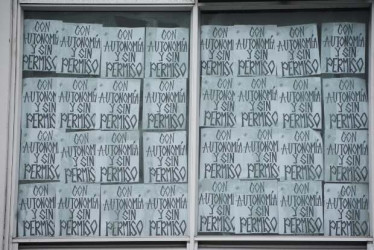 CON
AUTONOMÍA
Y SIN
PERMISO
CON
AUTONOMÍA
Y SIN
PERMISO
CON
AUTONOMÍA
Y SIN
PERMISO
CON
AUTONOMÍA
Y SIN
PERMISO
CON
AUTONOMÍA
Y SIN
PERMISO
CON
AUTONOMÍA
Y SIN
PERMISO
CON
AUTONOMÍA
Y SIN
PERMISO
CON
AUTONOMÍA
Y SIN
PERMISO
CON
AUTONOMÍA
Y SIN
PERMISO
CON
AUTONOMÍA
Y SIN
PERMISO
CON
AUTONOMÍA
Y SIN
PERMISO
CON
AUTONOMÍA
Y SIN
PERMISO
CON
AUTONOMÍA
Y SIN
PERMISO
CON
AUTONOMÍA
Y SIN
PERMISO
CON
AUTONOMÍA
Y SIN
PERMISO
CON
AUTONOMÍA
Y SIN
PERMISO
CON
AUTONOMÍA
Y SIN
PERMISO
CON
AUTONOMÍA
Y SIN
PERMISO
CON
AUTONOMÍA
Y SIN
PERMISO
CON
AUTONOMÍA
Y SIN
PERMISO
CON
AUTONOMÍA
Y SIN
PERMISO
CON
AUTONOMÍA
Y SIN
PERMISO
CON
AUTONOMÍA
Y SIN
PERMISO
CON
AUTONOMÍA
Y SIN
PERMISO
CON
AUTONOMÍA
Y SIN
PERMISO
CON
AUTONOMÍA
Y SIN
PERMISO
CON
AUTONOMÍA
Y SIN
PERMISO
CON
AUTONOMÍA
Y SIN
PERMISO
CON
AUTONOMÍA
Y SIN
PERMISO
CON
AUTONOMÍA
Y SIN
PERMISO
CON
AUTONOMÍA
Y SIN
PERMISO
CON
AUTONOMÍA
Y SIN
PERMISO